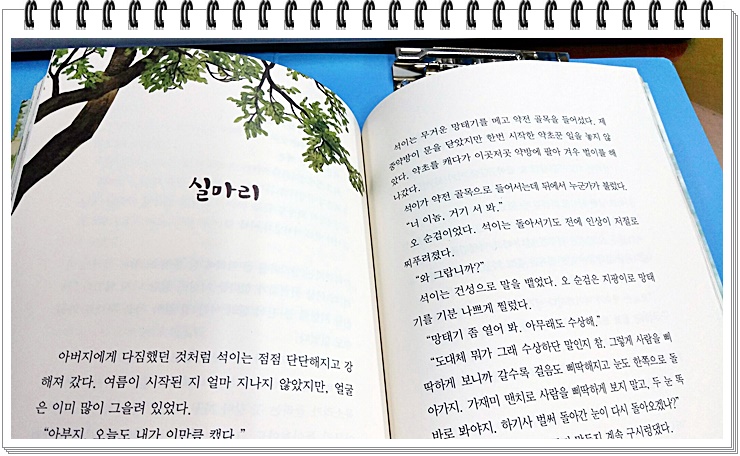 실마리
아버지에게 다짐했던 것처럼 석이는 점점 단단해지고 강
해져 갔다. 여름이 시작된 지 얼마 지나지 않았지만, 얼굴
은 이미 많이 그을려 있었다.
“아부지, 오늘도 내가 이만큼 캤다.”
석이는 무거운 망태기를 메고 약전 골목을 들어섰다. 제
중약방이 문을 닫았지만 한번 시작한 약초꾼 일을 놓지 않
았다. 약초를 캐다가 이곳저곳 약방에 팔아 겨우 벌이를 해
나갔다.
석이가 약전 골목으로 들어서는데 뒤에서 누군가가 불렀다.
“너 이놈, 거기 서 봐.”
오 순검이었다. 석이는 돌아서기도 전에 인상이 저절로
찌푸려졌다.
“와 그랍니까?”
석이는 건성으로 말을 뱉었다. 오 순검은 지팡이로 망태
기를 기분 나쁘게 찔렀다.
“망태기 좀 열어 봐. 아무래도 수상해.”
“도대체 뭐가 그래 수상하단 말인지 참. 그렇게 사람을 삐
딱하게 보니까 갈수록 걸음도 삐딱해지고 눈도 한쪽으로 돌
아가지. 가재미 맨치로 사람을 삐딱하게 보지 말고, 두 눈 똑
바로 봐야지. 하기사 벌써 돌아간 눈이 다시 돌아오겠나?”
계속 구시렁댔다.